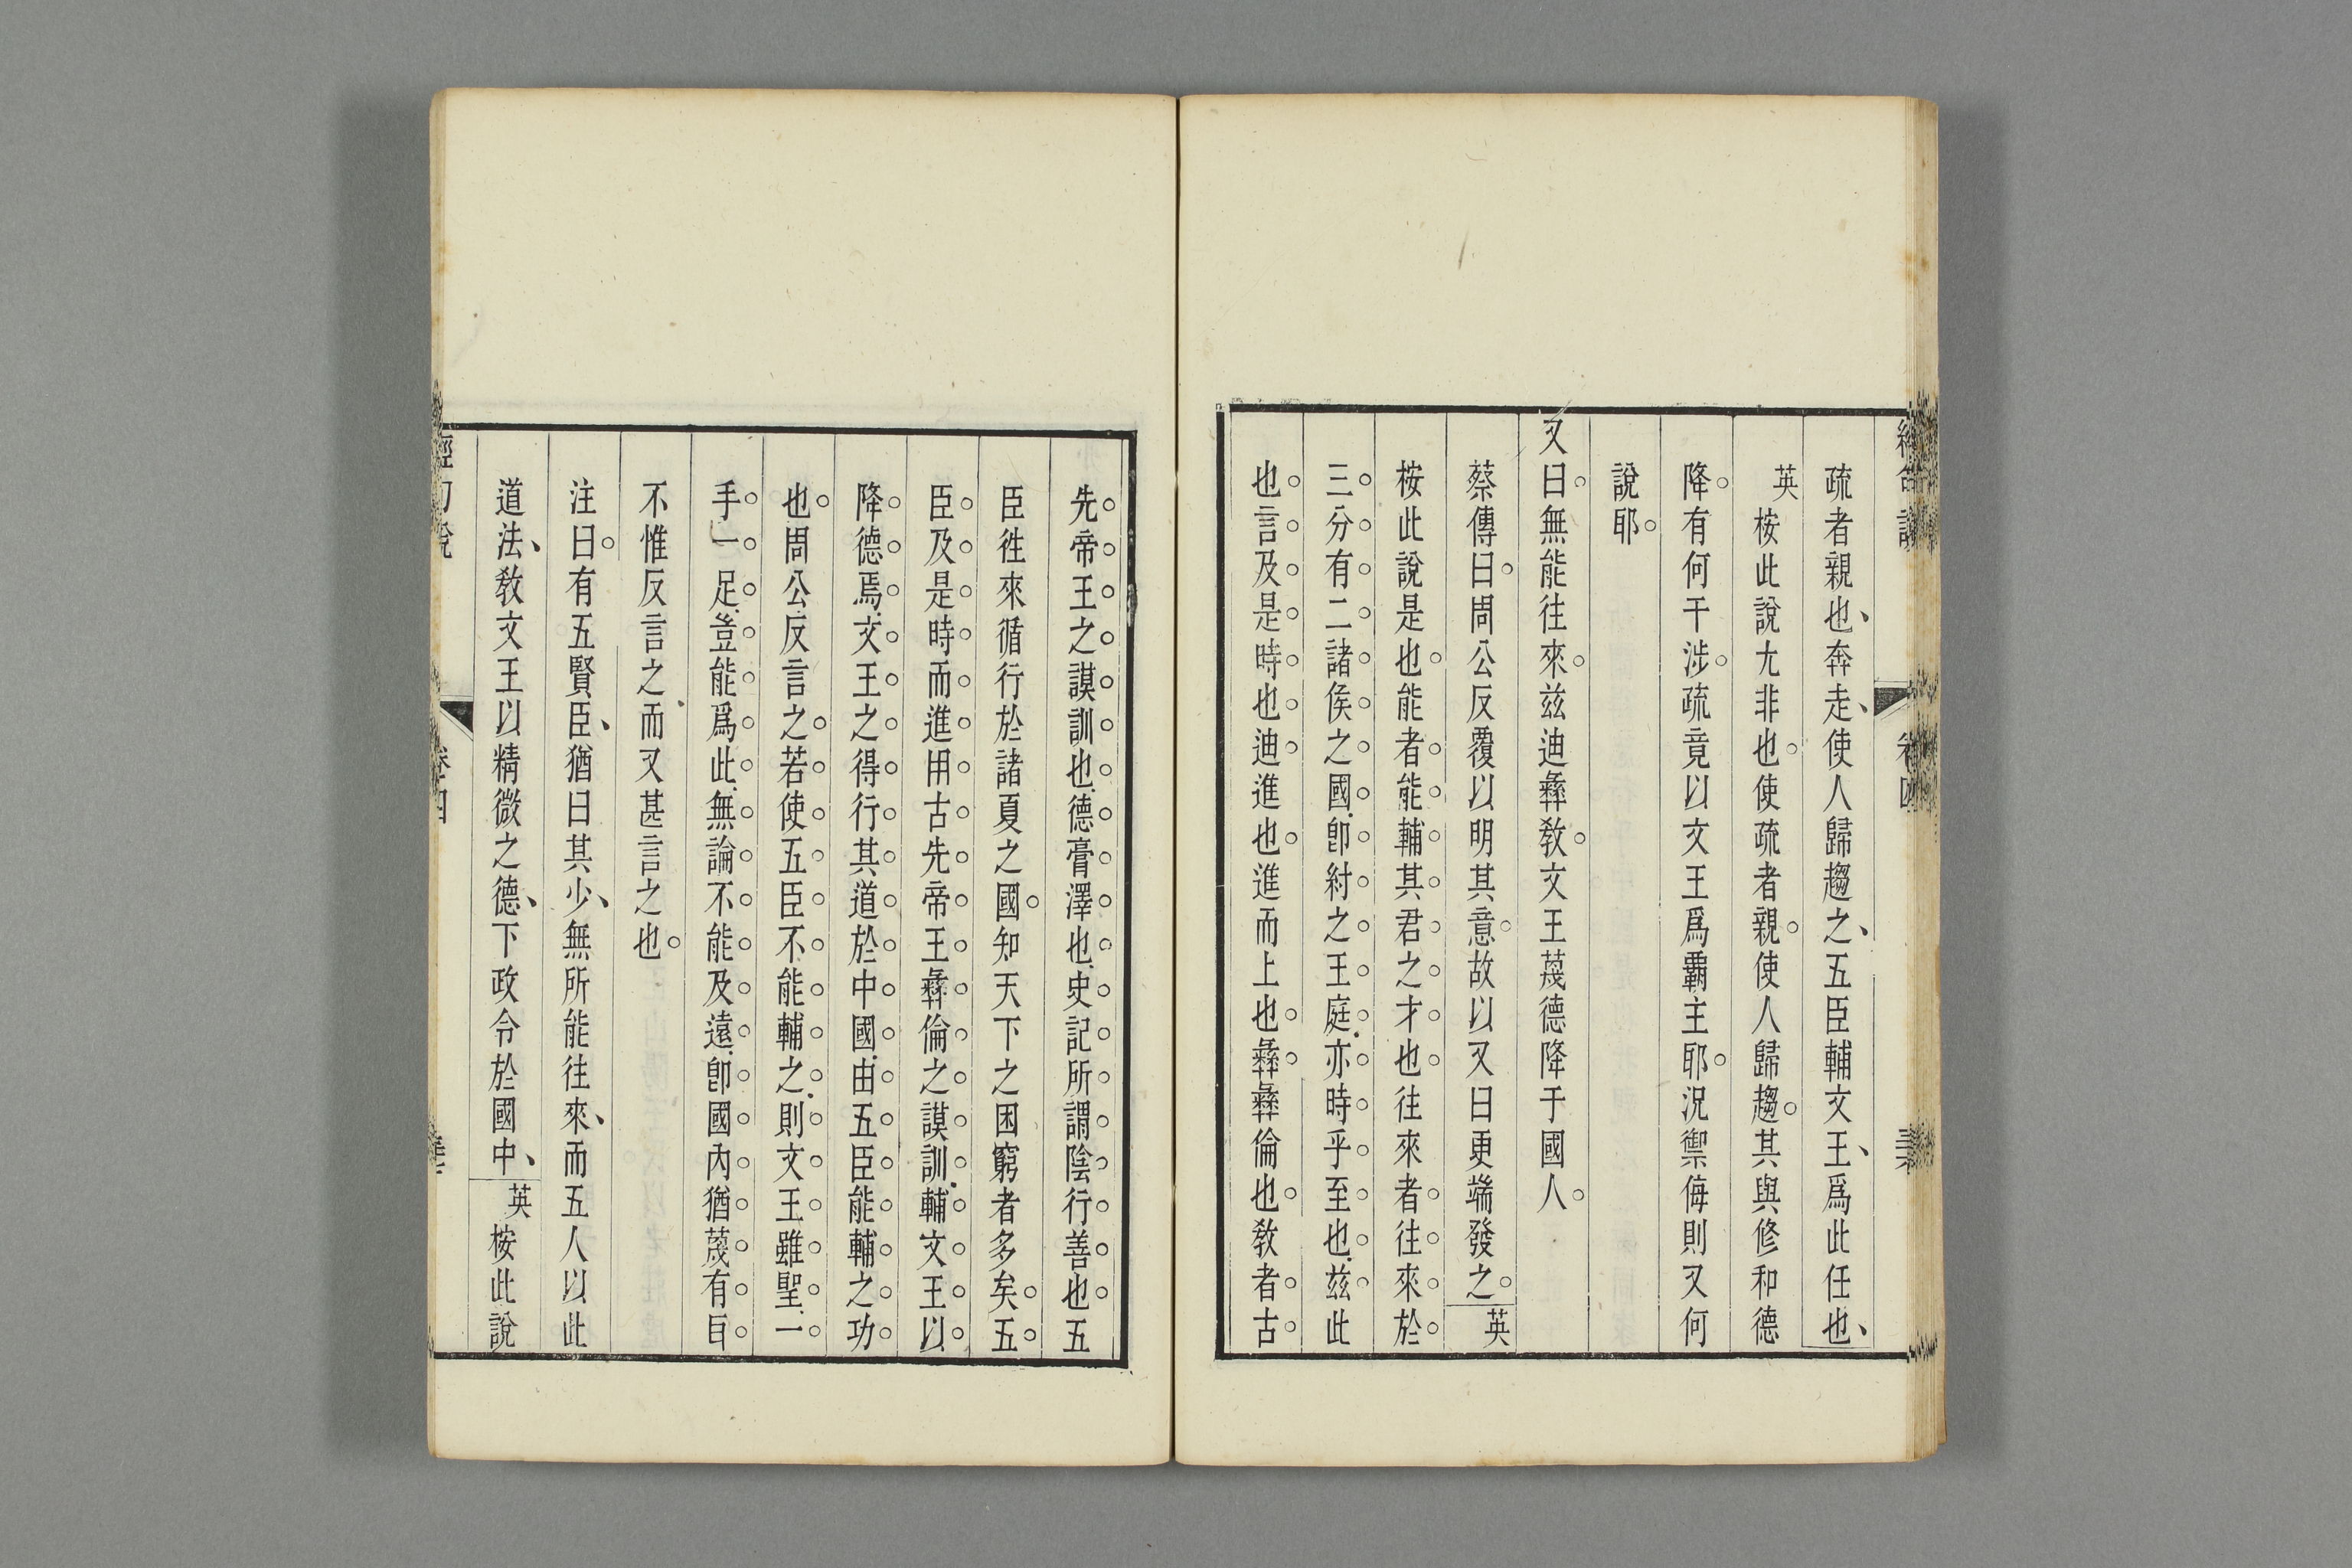 疏者親也奔走使人歸趨之五臣輔文王爲此任也
英桉此說尢非也使疏者親使人歸趨其與修和德
降有何干涉疏竟以文王爲霸主耶況禦侮則又何
說耶
又曰無能往來茲迪彝敎文王蔑德降于國人
蔡傳曰周公反覆以明其意故以又曰更端發之英
桉此說是也能者能輔其君之才也往來者往來於
三分有二諸侯之國卽紂之王庭亦時乎至也茲此
也言及是時也迪進也進而上也彝彝倫也敎者古
先帝王之謨訓也德膏澤也史記所謂陰行善也五
臣徃來循行於諸夏之國知天下之困窮者多矣五
臣及是時而進用古先帝王彝倫之謨訓輔文王以
降德焉文王之得行其道於中國由五臣能輔之功
也周公反言之若使五臣不能輔之則文王雖聖一
手一足豈能爲此無論不能及遠卽國內猶蔑有自
不惟反言之而又甚言之也
注曰有五賢臣猶曰其少無所能往來而五人以此
道法敎文王以精微之德下政令於國中英桉此說
卷四